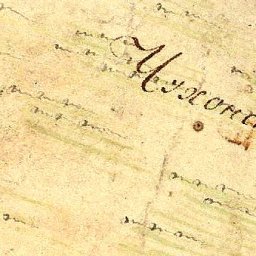 Чухонс